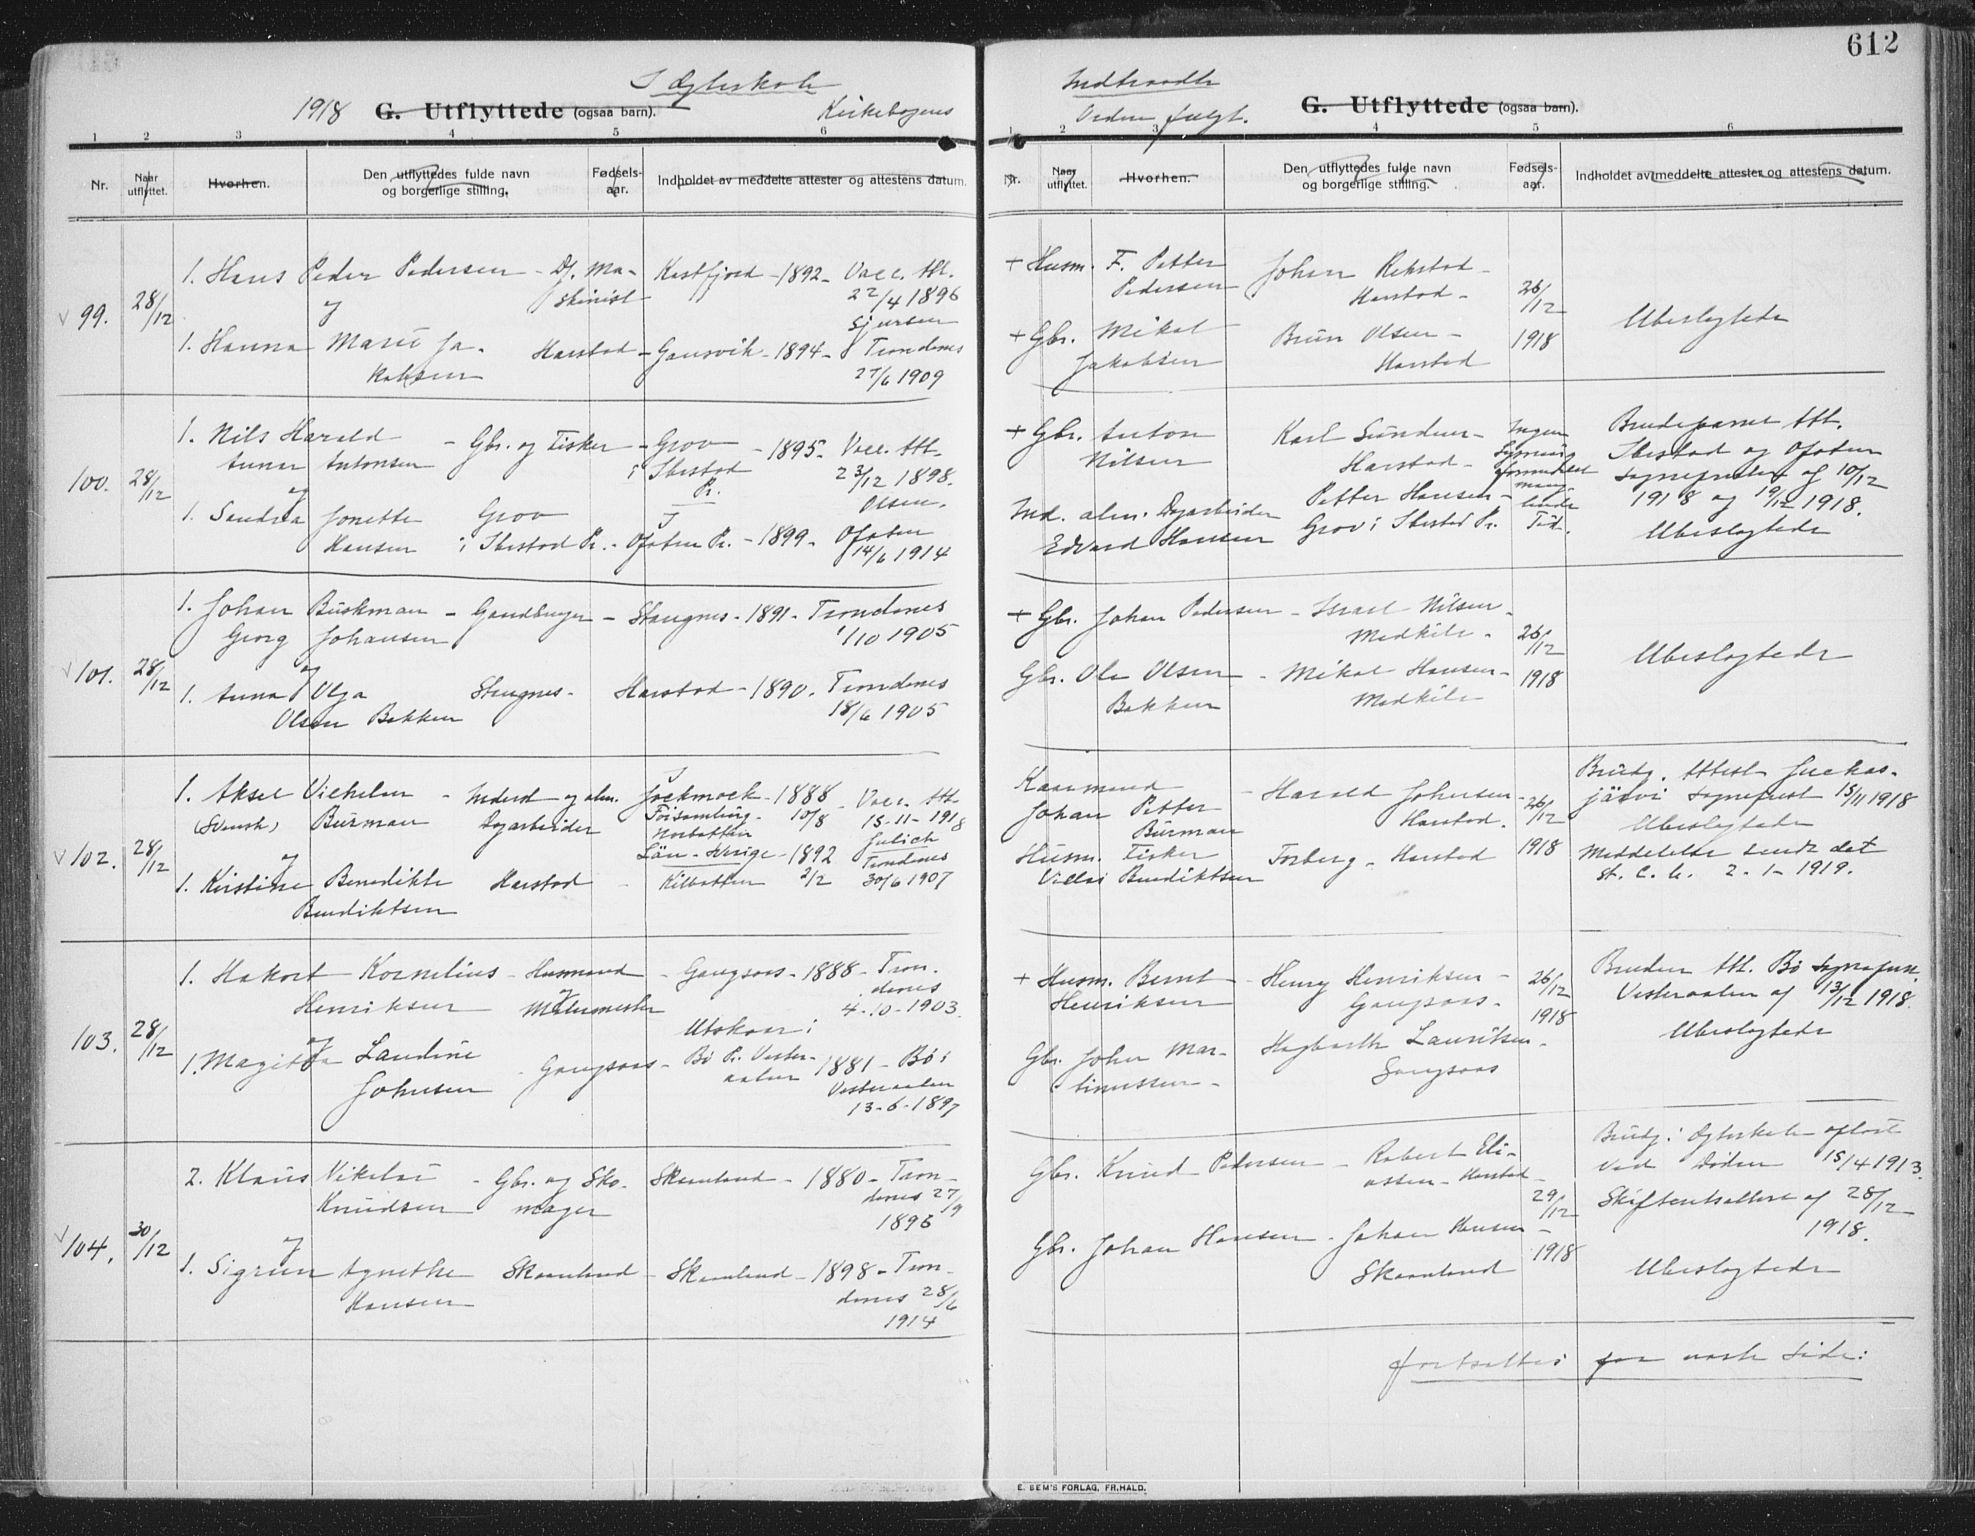 612
I Ægteskab
Indtraadte
1918 G. Utflyttede (ogsaa barn).
Kirkebogens
Orden fulgt.
G. Utflyttede (ogsaa barn).
1 2 3 4 5 6
1 2 3 4 5 6
Nr. Naar utflyttet. Hvorhen. Den utflyttedes fulde navn og borgerlige stilling. Fødsels-aar. Indholdet av meddelte attester og attestens datum.
Nr. Naar utflyttet. Hvorhen. Den utflyttedes fulde navn og borgerlige stilling. Fødsels-aar. Indholdet av meddelte attester og attestens datum.
99. 28/12
1. Hans Peder Pedersen - Df. Ma-
skinist
Kastfjord - 1892 - Vacc. Att.
22/4 1896
Sjursen
og
1. Hanna Marie Ja-
kobsen
Harstad - Gausvik - 1894 - Trondenes
27/6 1909
+ Husm. F. Petter
Pedersen
Johan Rekstad -
Harstad -
26/12
1918
+ Gbr. Mikal
Jakobsen
Brun Olsen -
Harstad
Ubeslegtede
100. 28/12
1. Nils Harald
Annar Antonsen
- Gbr. og Fisker - Grov
i Ibestad
Pr.
- 1895 - Vacc. Att.
23/12 1898.
Olsen.
og
1. Sandra Jonette
Hansen
Grov
i Ibestad Pr. - Ofoten Pr. - 1899 - Ofoten
14/6 1914
+ Gbr. Anton
Nilsen
Karl Sundner -
Harstad -
Ingen
Lysning
formedelst
mang-
lende
Tid.
Ind. alm. Dagarbeider
Edvard Hansen
Petter Hansen -
Grov i Ibestad Pr.
Brudeparret Att.
Ibestad og Ofoten
Sogneprest af 10/12
1918 og 19/12 1918.
Ubeslegtede
101. 28/12
1. Johan Buskman
Georg Johansen
- Gaardbruger - Stangnes - 1891 - Trondenes
1/10 1905
og
1. Anna Olga
Olsen Bakken
Stangnes - Harstad - 1890 - Trondenes
18/6 1905
+ Gbr. Johan Pedersen - Israel Nilsen -
Medkile -
26/12
1918
Gbr. Ole Olsen
Bakken
- Mikal Hansen -
Medkile
Ubeslegtede
102. 28/12
1. Aksel Vilhelm
(Svensk) Burman
- Inderst og alm.
Dagarbeider
Jockmock
Församling -
Norbotten
Län - Sverige
- 1888
10/8
- Vacc. Att.
15-11-1918
Julich
og
1. Kirstine Benedikte
Bendiktsen
Harstad - Kilbotten - 1892
2/2
Trondenes
30/6 1907
Kaarmand
Johan Petter
Burman
- Harald Johnsen -
Harstad.
26/12
1918
Husm. Fisker
Bendiktsen
Torberg - Harstad
Brudg. Attest Juckas-
järvi Sogneprest 15/11 1918
Ubeslegtede
Meddelelse sendt det
st. C. b. 2-1-1919.
103. 28/12
1. Hakort Kornelius
Henriksen
- Husmand
og
Malermester
- Gangsaas - 1888 - Tron-
denes
4-10-1903.
og
1. Magitta Landine
Johnsen
- Gangsaas - Utskaar i
Bø Pr. Vester-
aalen
1881 - Bø i
Vesteraalen
13-6-1897
+ Husm. Bernt
Henriksen
- Henry Henriksen -
Gangsaas -
26/12
1918
Gbr. Johan Mar-
tinussen -
Hagbarth Lauritsen -
Gangsaas
Bruden Att. Bø Sognepr.
Vesteraalen af 13/12 1918.
Ubeslegtede
104. 30/12
2. Klaus Nikolai
Knudsen
- Gbr. og Sko-
mager
- Skaanland - 1880 - Tron-
denes 27/9
1896
og
1. Sigrun Agnethe
Hansen
Skaanland - Skaanland - 1898 - Tron-
denes 28/6
1914
Gbr. Knud Pedersen - Robert Eli-
assen - Harstad -
29/12
1918
Gbr. Johan Hansen - Johan Hansen -
Skaanland
Brudg. i Ægteskab opløst
ved Døden 15/4 1913.
Skifteattest af 28/12
1918.
Ubeslegtede
fortsættes paa næste Side:
E. SEM'S FORLAG, FR.HALD.